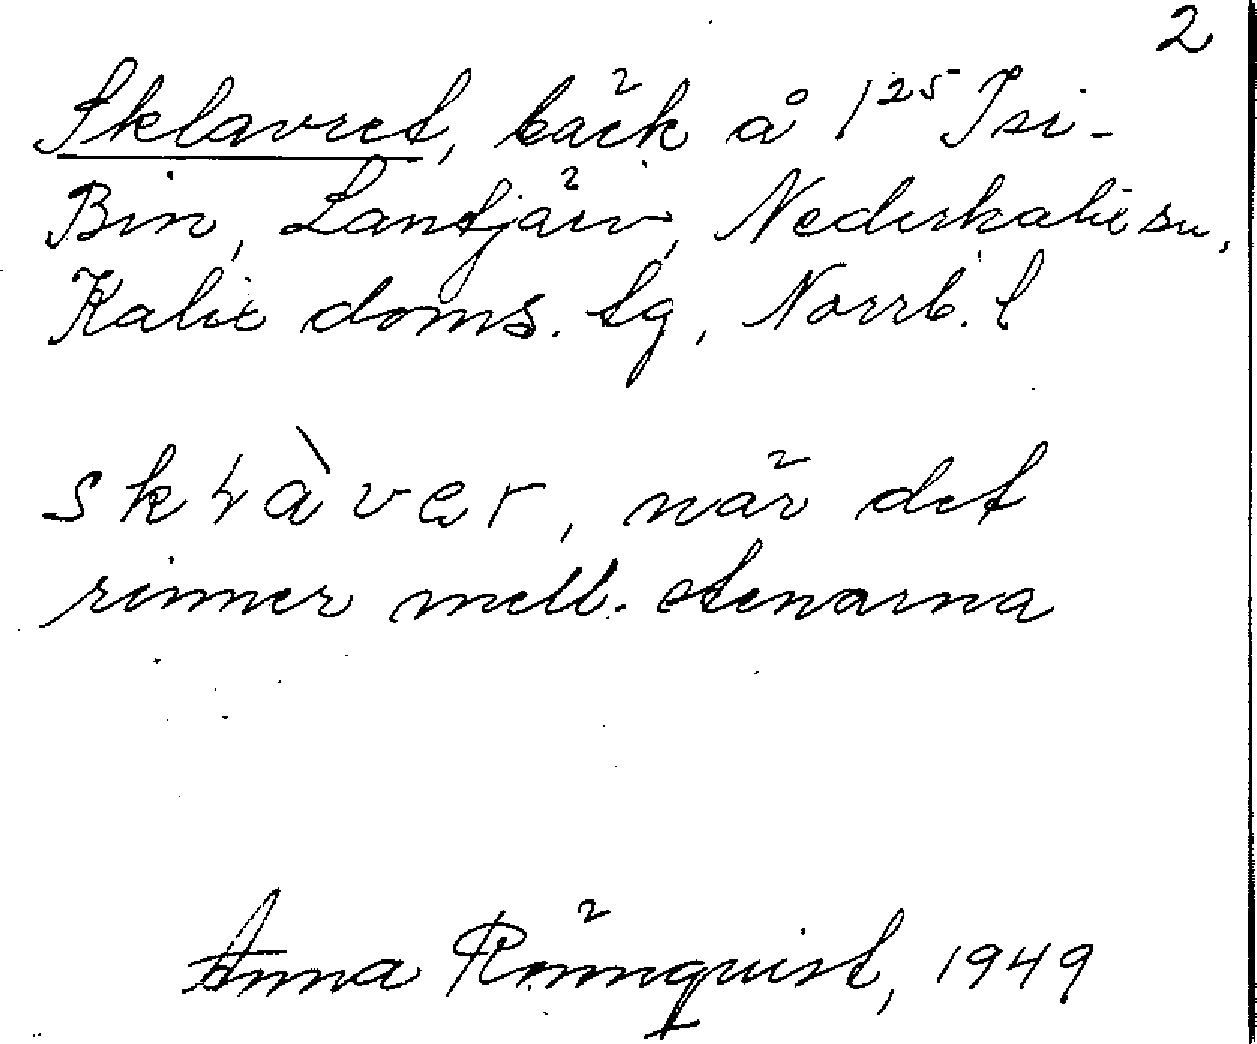 2
Sklavret, bäck å 1²⁵ Tsi-
Bin, Lantjärv, Nederkalix sn,
Kalix doms. tg, Norrb. l
skràver, när det
rinner mell. stenarna
Anna Rönnquist, 1949